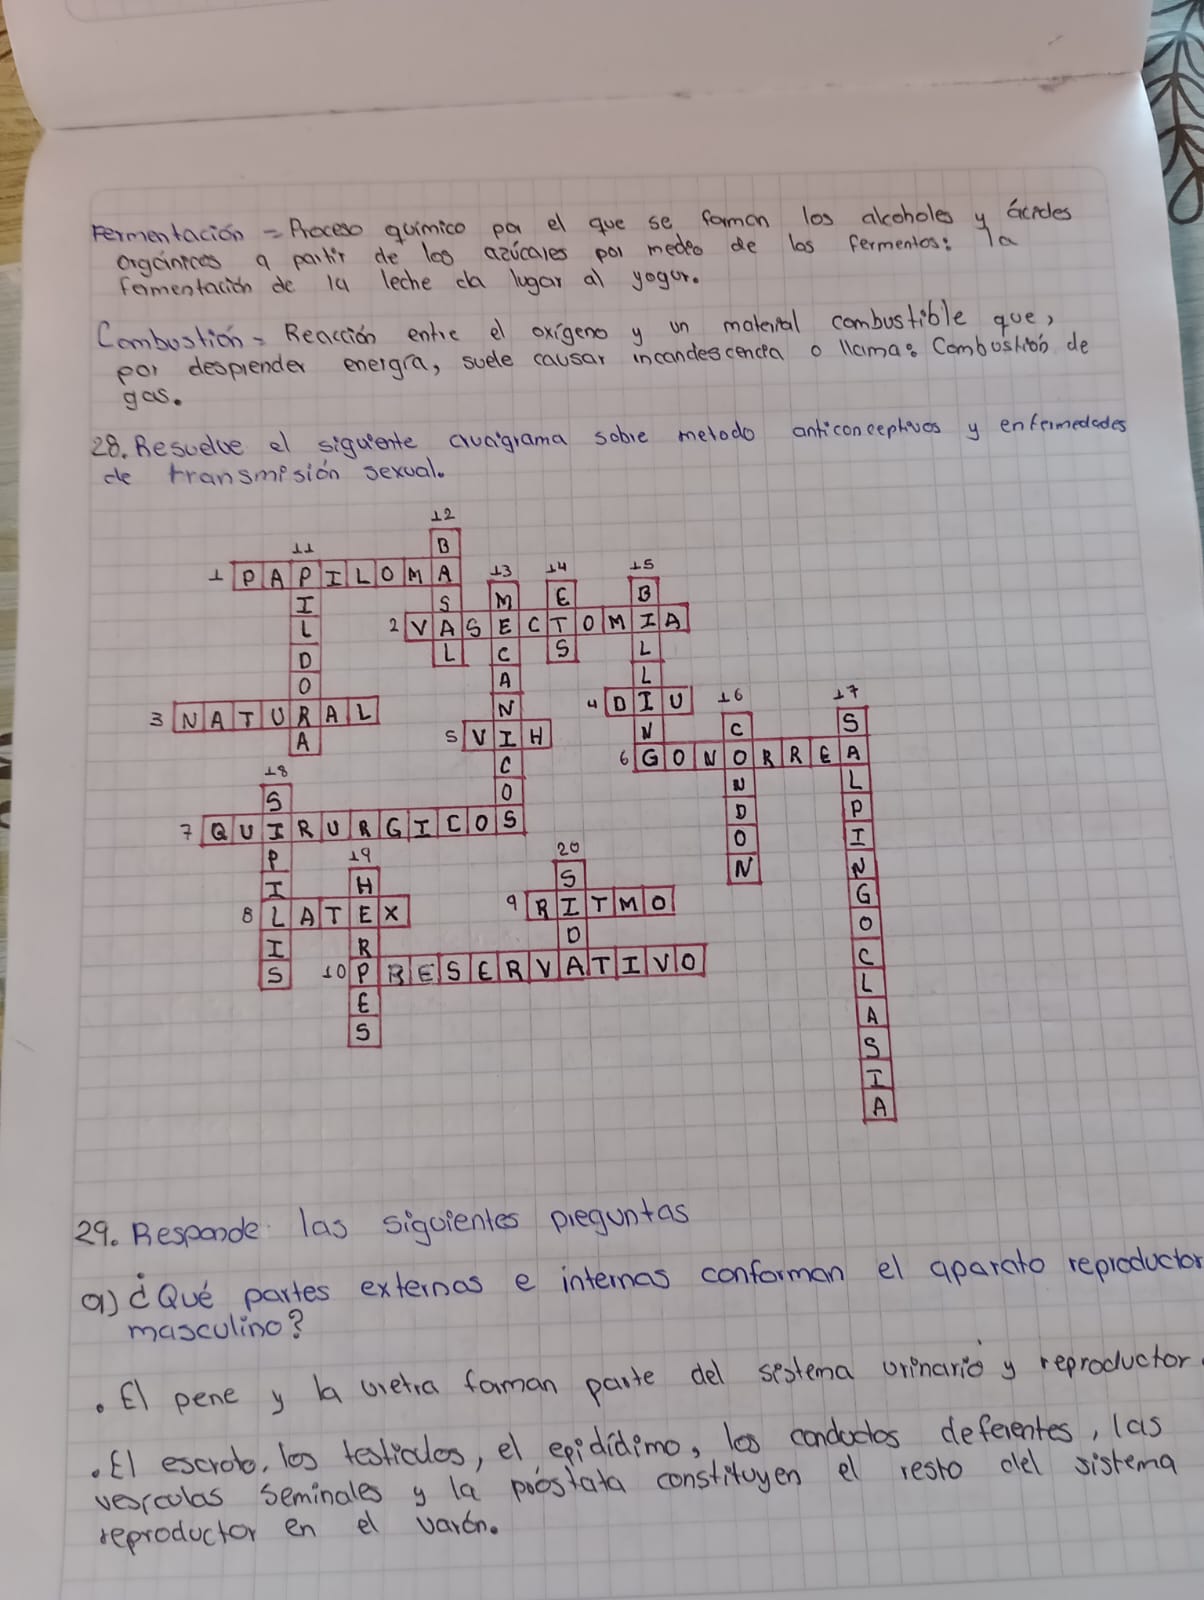 Fermentación = Proceso químico por el que se forman los alcoholes y ácidos
orgánicos a partir de los azúcares por medio de los fermentos: la
fermentación de la leche da lugar al yogur.
Combustión = Reacción entre el oxígeno y un material combustible que,
por desprender energía, suele causar incandescencia o llama: Combustión de
gas.
28. Resuelve el siguiente crucigrama sobre metodo anticonceptivos y enfermedades
de transmisión sexual.
12 BASAL
11 PILDORA
1 PAPILOMA
13 MECANNICOS
14 ETS
15 BILLING
2 VASECTOMIA
3 NATURAL
4 DIU
16 CONDON
17 SALPINGOCLASIA
5 VIH
6 GONORREA
18 SIPILIS
7 QUIRURGICOS
19 HERPES
20 SIDA
8 LATEX
9 RITMO
10 PRESERVATIVO
29. Responde las siguientes preguntas
a) ¿Qué partes externas e internas conforman el aparato reproductor
masculino?
. El pene y la uretra forman parte del sistema urinario y reproductor.
. El escroto, los testiculos, el epidídimo, los conductos deferentes, las
vesículas seminales y la próstata constituyen el resto del sistema
reproductor en el varón.